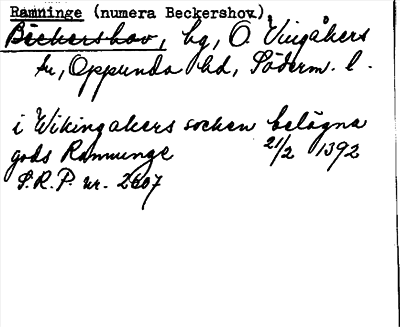 Ramninge (numera Beckershov),
Beckershov, hg, Ö. Vingåkers
sn, Oppunda hd, Söderm. l.
i Wikingakers socken belägna
gods Ramunge 21/2 1392
S.R.P. nr. 2607